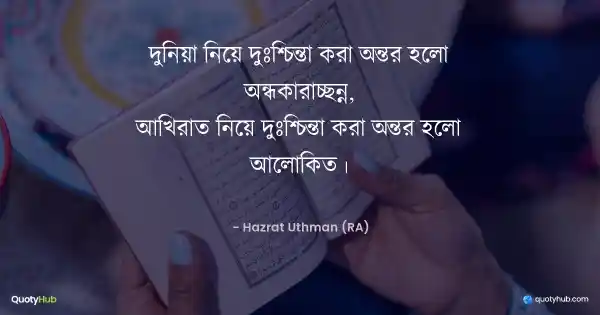 দুনিয়া নিয়ে দুঃশ্চিন্তা করা অন্তর হলো
অন্ধকারাচ্ছন্ন,
আখিরাত নিয়ে দুঃশ্চিন্তা করা অন্তর হলো
আলোকিত।
- Hazrat Uthman (RA)
QuotyHub
quotyhub.com